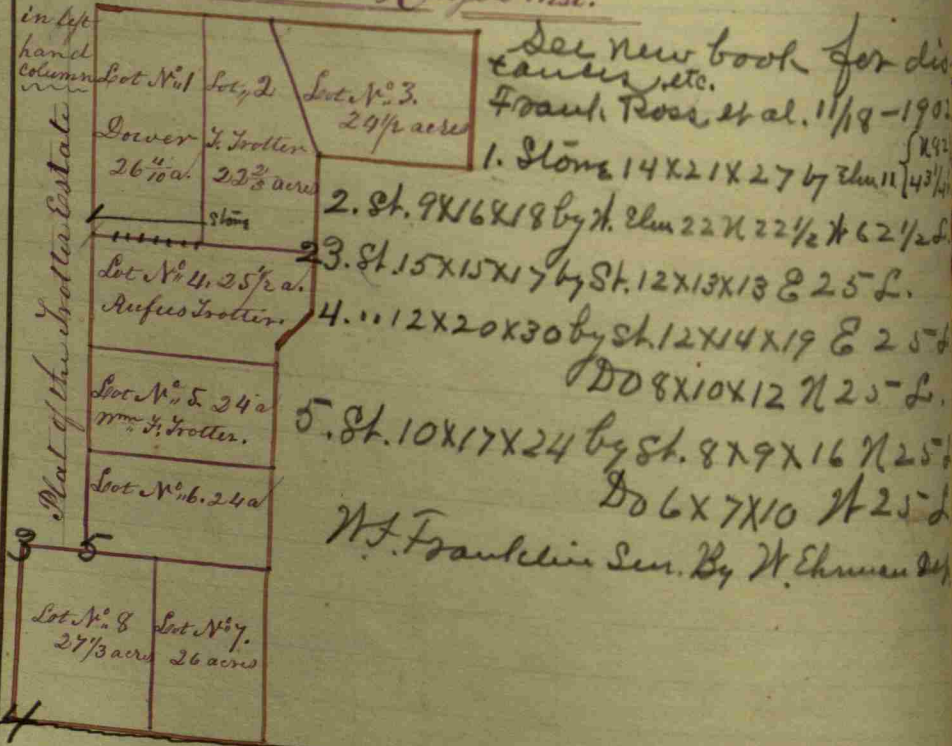 in left
hand
column
Plat of the Trotter Estate
Lot No 1
Dower
26 4/10 a.
Lot, 2
F. Trotter
22 2/3 acres
Stone
Lot No 3.
24 1/2 acres
Lot No 4. 25 1/2 a.
Rufus Trotter.
Lot No 5. 24 a
Wm F. Trotter.
Lot No 6. 24 a
Lot No 8
27 1/3 acres
Lot No 7.
26 acres
1
2
3
5
4
See new book for dis
tances, etc.
Frank Ross et al. 11/18-190
1. Stone 14X21X27 by Elm 11 { N92
43 1/4
2. St. 9X16X18 by W. Elm 22 N 22 1/2 W 62 1/2 L
3. St. 15X15X17 by St. 12X13X13 E 25 L.
4. " 12X20X30 by St. 12X14X19 E 25 L
Do 8X10X12 N 25 L.
5. St. 10X17X24 by St. 8X9X16 N 25
Do 6X7X10 W 25 L
W.F. Franklin Sur. By W. Ehrman Dep